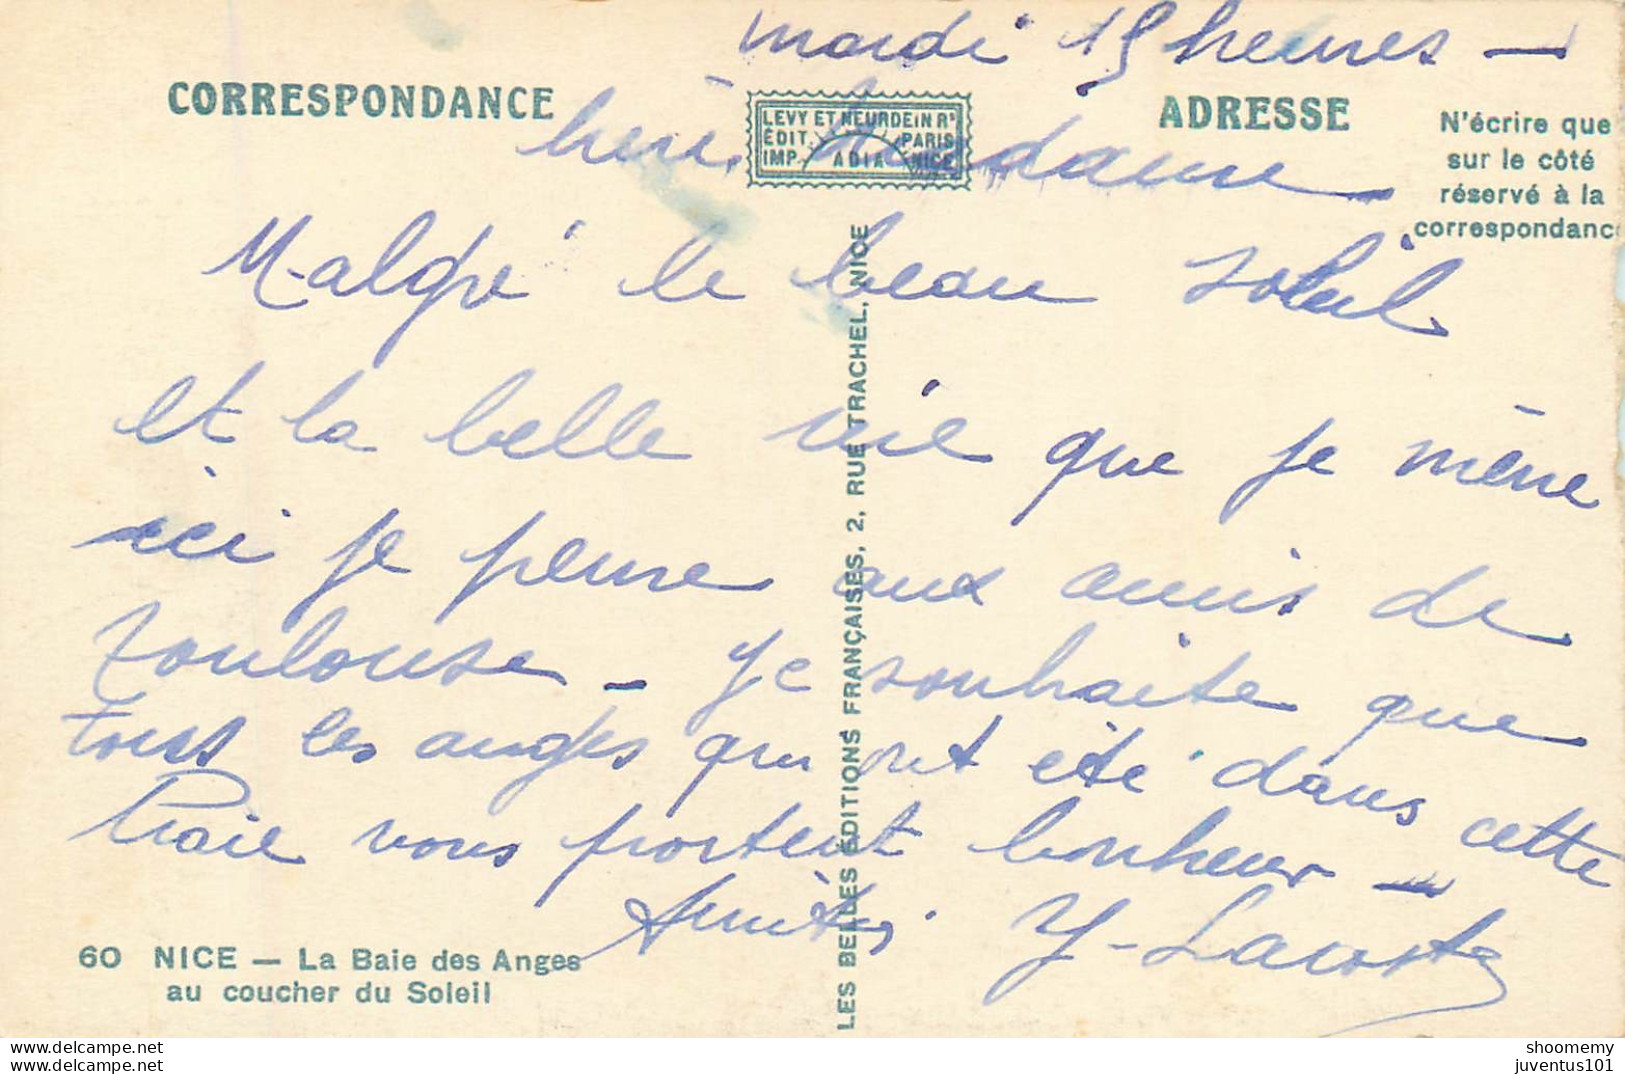 mardi 15 heures —
CORRESPONDANCE
LEVY ET NEURDEIN Rˢ
ÉDIT. PARIS
IMP. ADIA NICE
ADRESSE
N'écrire que
sur le côté
réservé à la
correspondance
Madame
Malgré le beau soleil
et la belle vie que je mène
ici je pense aux amis de
Toulouse — Je souhaite que
tous les anges qui ont été dans cette
Baie vous portent bonheur —
Amitiés. Y. Lacoste
60 NICE — La Baie des Anges
au coucher du Soleil
LES BELLES ÉDITIONS FRANÇAISES, 2, RUE TRACHEL, NICE
delcampe.net
delcampe.net
shoomemy
juventus101